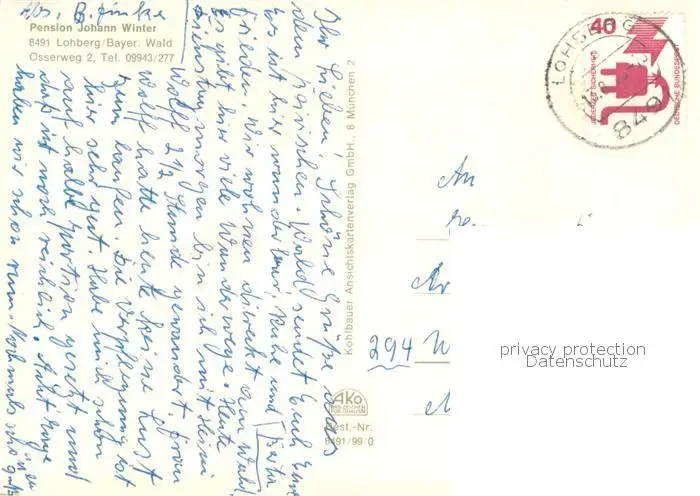 Abs. B. Funke
Pension Johann Winter
8491 Lohberg/Bayer. Wald
Osserweg 2, Tel. 09943/277
Ihr Lieben! Schöne Grüße aus
dem Bayrischen Wald sendet Euch
Es ist hier wunderbar, Ruhe und
Frieden. Wir wohnen direkt am Wald.
Es gibt hier viele Wanderwege. Heute
morgen bin ich mit Heini
Wolff 2 1/2 Stunde gewandert. Frau
Wolff hatte heute keine Lust
zum laufen. Die Verpflegung ist
hier sehr gut. Habe mich schon
auf halbe Portion gesetzt und
das ist noch reichlich. Acht Tage
haben wir schon rum. Nochmals
Kohlbauer Ansichtskartenverlag GmbH., 8 München 2
AKO
Best.-Nr.
8491/99/0
40
JEDERZEIT SICHERHEIT
DEUTSCHE BUNDESPOST
LOHBERG
849
An
294
privacy protection
Datenschutz